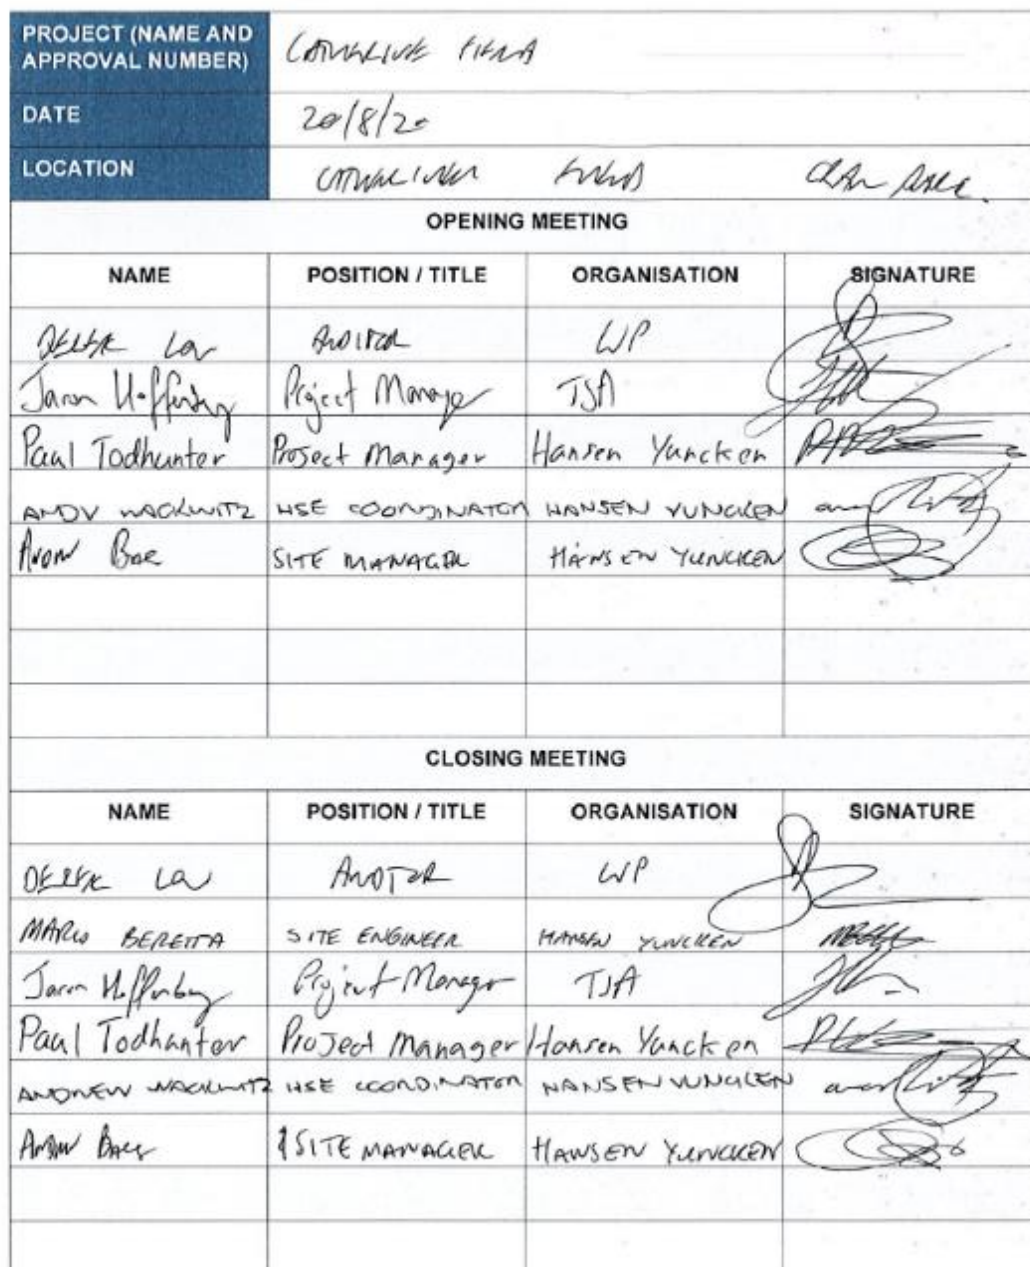 PROJECT (NAME AND
APPROVAL NUMBER)
CATHERINE FIELD
DATE 20/8/20
LOCATION CATHERINE FIELD
OPENING MEETING
NAME POSITION / TITLE ORGANISATION SIGNATURE
DEREK LOW AUDITOR WP
Project Manager TSA
Paul Todhunter Project Manager Hansen Yuncken
ANDY WACKWITZ HSE COORDINATOR HANSEN YUNCKEN
SITE MANAGER HANSEN YUNCKEN
CLOSING MEETING
NAME POSITION / TITLE ORGANISATION SIGNATURE
DEREK LOW AUDITOR WP
MARCO BERETTA SITE ENGINEER HANSEN YUNCKEN
Project Manager TSA
Paul Todhunter Project Manager Hansen Yuncken
ANDREW WACKWITZ HSE COORDINATOR HANSEN YUNCKEN
SITE MANAGER HANSEN YUNCKEN